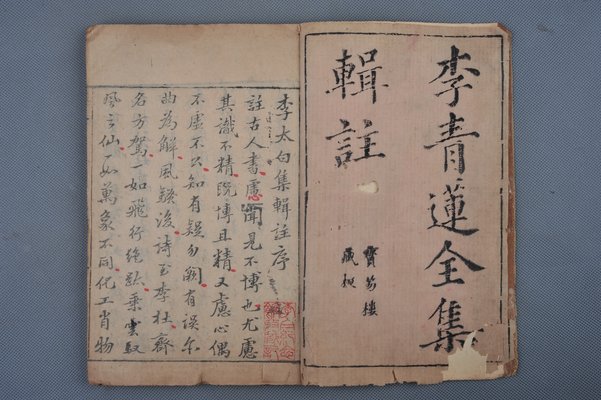 李青蓮全集
輯註
寶笏樓
藏板
李太白集輯註序
註古人書慮聞見不博也尤慮
其識不精既博且精又慮心偶
不虛不知有疑勿闕有誤
曲為解風騷後詩至李杜齊
名方駕一如飛行絕跡乘雲馭
風之仙一如萬象不同化工肖物